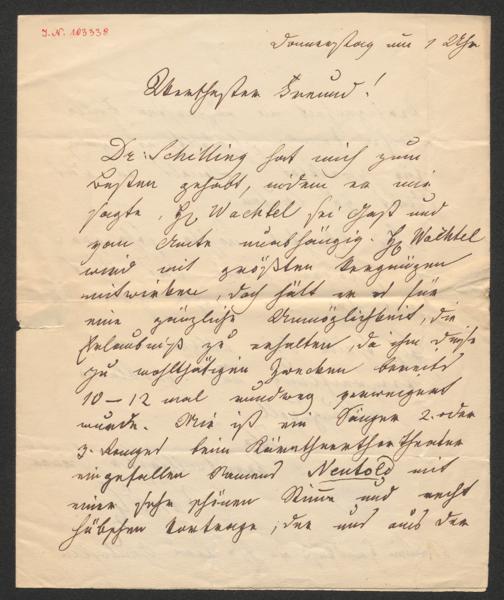 J. N. 103338
Donnerstag um 1 Uhr
Werthester Freund!
Dr: Schilling hat mich zum
besten gehabt, indem er mir
sagte, H. Wachtel sei Gast und
vom Amte unabhängig. H. Wachtel
wird mit größten Vergnügen
mitwirken, doch hält er es für
eine gänzliche Unmöglichkeit, die
Erlaubniß zu erhalten, da ihm diese
zu wohlthätigen Zwecken bereits
10–12 mal rundweg verweigert
wurde. Mir ist ein Sänger 2. oder
3. Ranges beim Kärnthnerthortheater
eingefallen Namens Neutold mit
einer sehr schönen Stimme und recht
hübschen Vortrage, der uns aus der